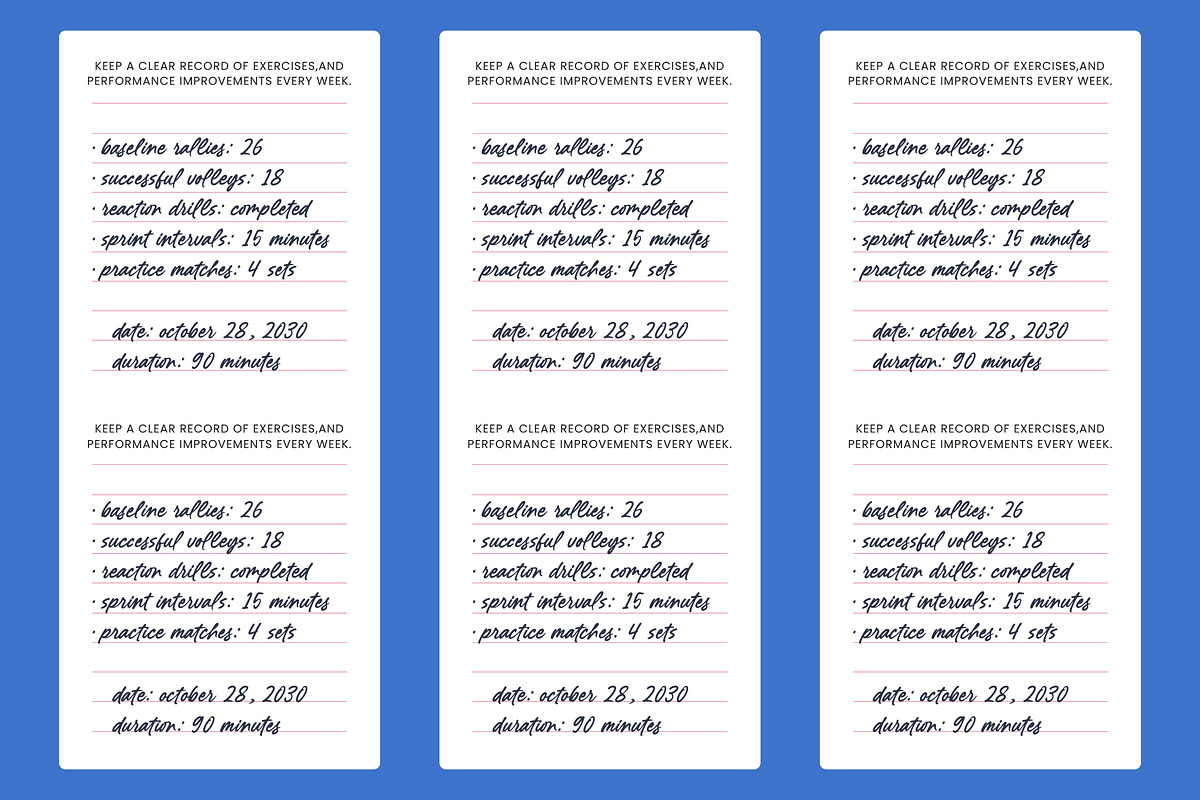 KEEP A CLEAR RECORD OF EXERCISES,AND
PERFORMANCE IMPROVEMENTS EVERY WEEK.
· baseline rallies: 26
· successful volleys: 18
· reaction drills: completed
· sprint intervals: 15 minutes
· practice matches: 4 sets
date: october 28, 2030
duration: 90 minutes
KEEP A CLEAR RECORD OF EXERCISES,AND
PERFORMANCE IMPROVEMENTS EVERY WEEK.
· baseline rallies: 26
· successful volleys: 18
· reaction drills: completed
· sprint intervals: 15 minutes
· practice matches: 4 sets
date: october 28, 2030
duration: 90 minutes
KEEP A CLEAR RECORD OF EXERCISES,AND
PERFORMANCE IMPROVEMENTS EVERY WEEK.
· baseline rallies: 26
· successful volleys: 18
· reaction drills: completed
· sprint intervals: 15 minutes
· practice matches: 4 sets
date: october 28, 2030
duration: 90 minutes
KEEP A CLEAR RECORD OF EXERCISES,AND
PERFORMANCE IMPROVEMENTS EVERY WEEK.
· baseline rallies: 26
· successful volleys: 18
· reaction drills: completed
· sprint intervals: 15 minutes
· practice matches: 4 sets
date: october 28, 2030
duration: 90 minutes
KEEP A CLEAR RECORD OF EXERCISES,AND
PERFORMANCE IMPROVEMENTS EVERY WEEK.
· baseline rallies: 26
· successful volleys: 18
· reaction drills: completed
· sprint intervals: 15 minutes
· practice matches: 4 sets
date: october 28, 2030
duration: 90 minutes
KEEP A CLEAR RECORD OF EXERCISES,AND
PERFORMANCE IMPROVEMENTS EVERY WEEK.
· baseline rallies: 26
· successful volleys: 18
· reaction drills: completed
· sprint intervals: 15 minutes
· practice matches: 4 sets
date: october 28, 2030
duration: 90 minutes